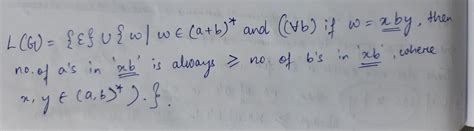 L(G) = {ε} ∪ {w | w ∈ (a+b)* and ((∀b) if w = xby, then
no. of a's in 'xb' is always ≥ no. of b's in 'xb', where
x, y ∈ (a,b)*).}.